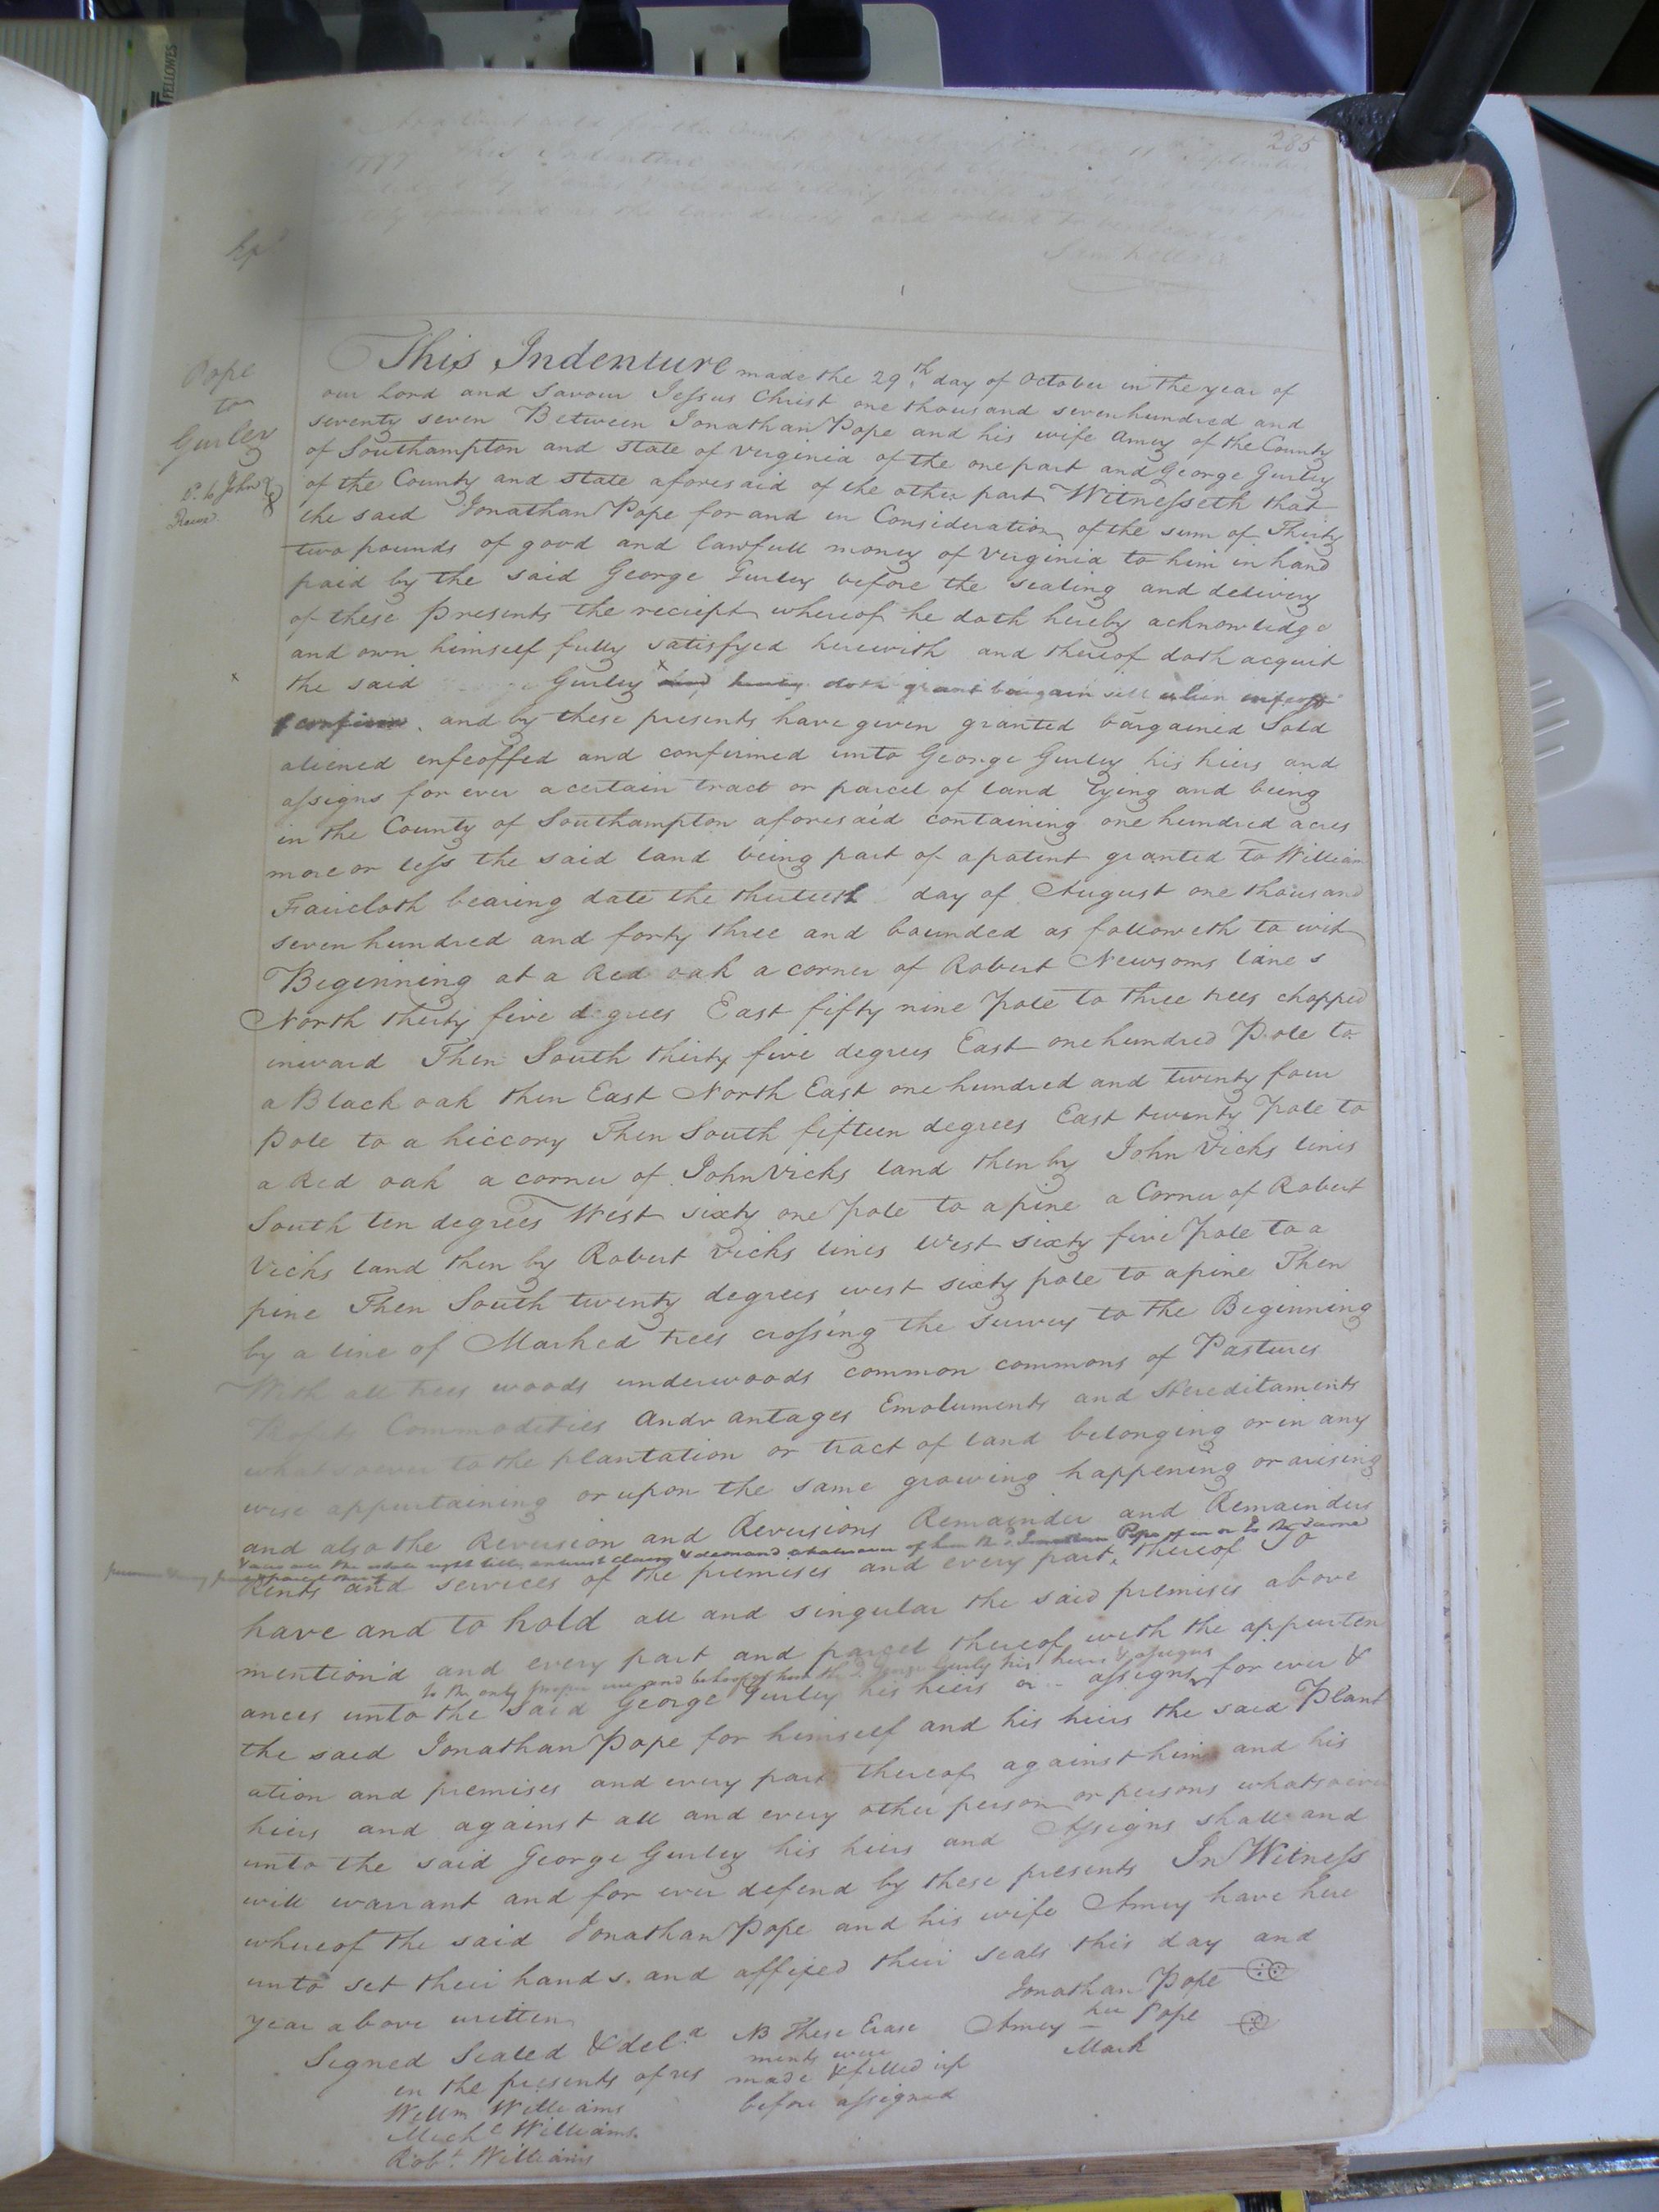 FELLOWES
285
Pope
to
Gurley
This Indenture made the 29th day of October in the year of
our Lord and Saviour Jessus Christ one thousand seven hundred and
seventy seven Between Jonathan Pope and his wife Amey of the County
of Southampton and State of Virginia of the one part and George Gurley
of the County and State aforesaid of the other part Witnesseth that
the said Jonathan Pope for and in Consideration of the sum of Thirty
two pounds of good and lawfull money of Virginia to him in hand
paid by the said George Gurley before the sealing and delivery
of these presents the reciept whereof he doth hereby acknowledge
and own himself fully satisfyed herewith and thereof doth acquit
the said George Gurley and hereby doth grant bargain sell alien infeoff
& confirm. and by these presents have given granted bargained Sold
aliened enfeoffed and confirmed unto George Gurley his hiers and
assigns for ever a certain tract or parcel of land lying and being
in the County of Southampton aforesaid containing one hundred acres
more or less the said land being part of a patent granted to William
Faircloth bearing date the thirtieth day of August one thousand
seven hundred and forty three and bounded as followeth to wit
Beginning at a Red oak a corner of Robert Newsoms lines
North thirty five degrees East fifty nine pole to three trees chopped
inward Then South thirty five degrees East one hundred Pole to
a Black oak then East North East one hundred and twenty four
pole to a hiccory Then South fifteen degrees East twenty pole to
a Red oak a corner of John Vicks land then by John Vicks lines
South ten degrees West sixty one pole to a pine a Corner of Robert
Vicks land then by Robert Vicks lines West sixty five pole to a
pine Then South twenty degrees west sixty pole to a pine Then
by a line of Marked trees crossing the survey to the Beginning
With all trees woods underwoods common commons of Pastures
Commodities Andvantages Emoluments and Hereditaments
whatsoever to the plantation or tract of land belonging or in any
wise appurtaining or upon the same growing happening or arising
and also the Reversion and Reversions Remainder and Remainders
& also all the estate right title interest claim & demand whatsoever of him the sd. Jonathan Pope of in or to the same
Rents and services of the premises and every part thereof To
have and to hold all and singular the said premises above
mention'd and every part and parcel thereof with the appurten
to the only proper use and behoof of him the sd. George Gurley his heirs & assigns
ances unto the said George Gurley his hiers or assigns for ever &
the said Jonathan Pope for himself and his hiers the said Plant
ation and premises and every part thereof against him and his
hiers and against all and every other person or persons whatsoever
unto the said George Gurley his hiers and Assigns shall and
will warrant and for ever defend by these presents In Witness
whereof the said Jonathan Pope and his wife Amey have here
unto set their hands. and affixed their seals this day and
year above written
Jonathan Pope
Amey her Pope
Mark
Signed Sealed & deld
in the presents of us
NB These Erase
ments were
made & filled up
before assigned
Willm Williams
Michl Williams.
Robt. Williams